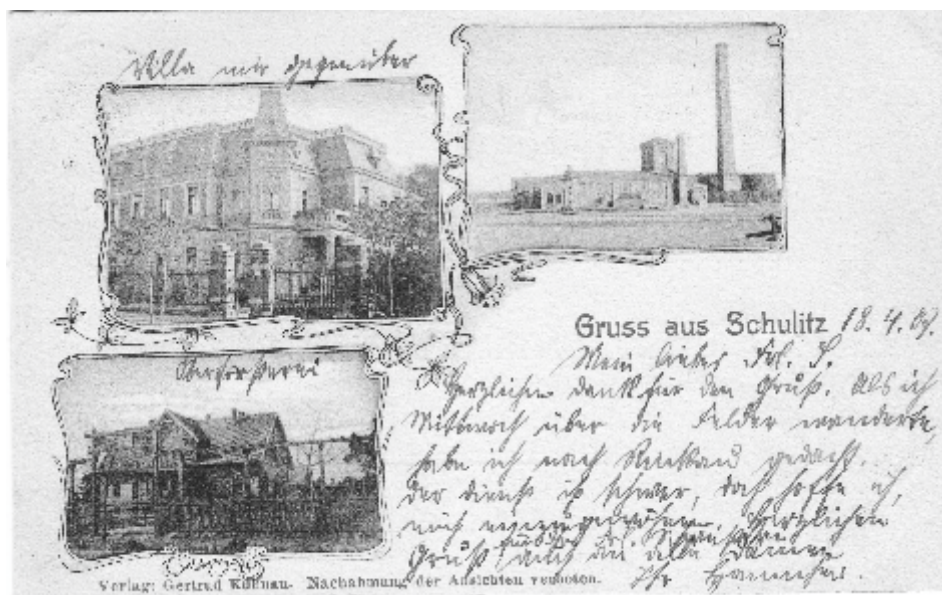 Villa mir gegenüber
Gruss aus Schulitz 18. 4. 07.
Mein liebes Frl. S.
Herzlichen Dank für den Gruß. Als ich
Mittwoch über die Felder wanderte,
habe ich nach gedacht.
Der Dienst ist schwer, doch hoffe ich,
mich einzugewöhnen. Herzlichen
Gruß auch an alle Damen
Ihr
Oberförsterei
Verlag: Gertrud Kühnau. Nachahmung der Ansichten verboten.